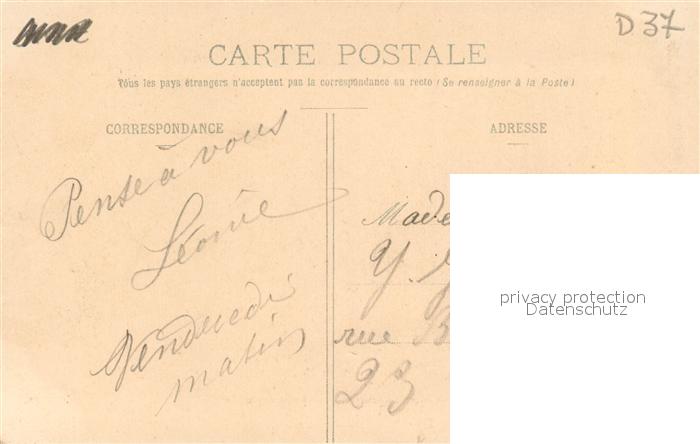 D 37
CARTE POSTALE
Tous les pays étrangers n'acceptent pas la correspondance au recto (Se renseigner à la Poste)
CORRESPONDANCE
ADRESSE
Pense à vous
Léonie
Vendredi
matin
Made
Y.
rue B
23
privacy protection
Datenschutz